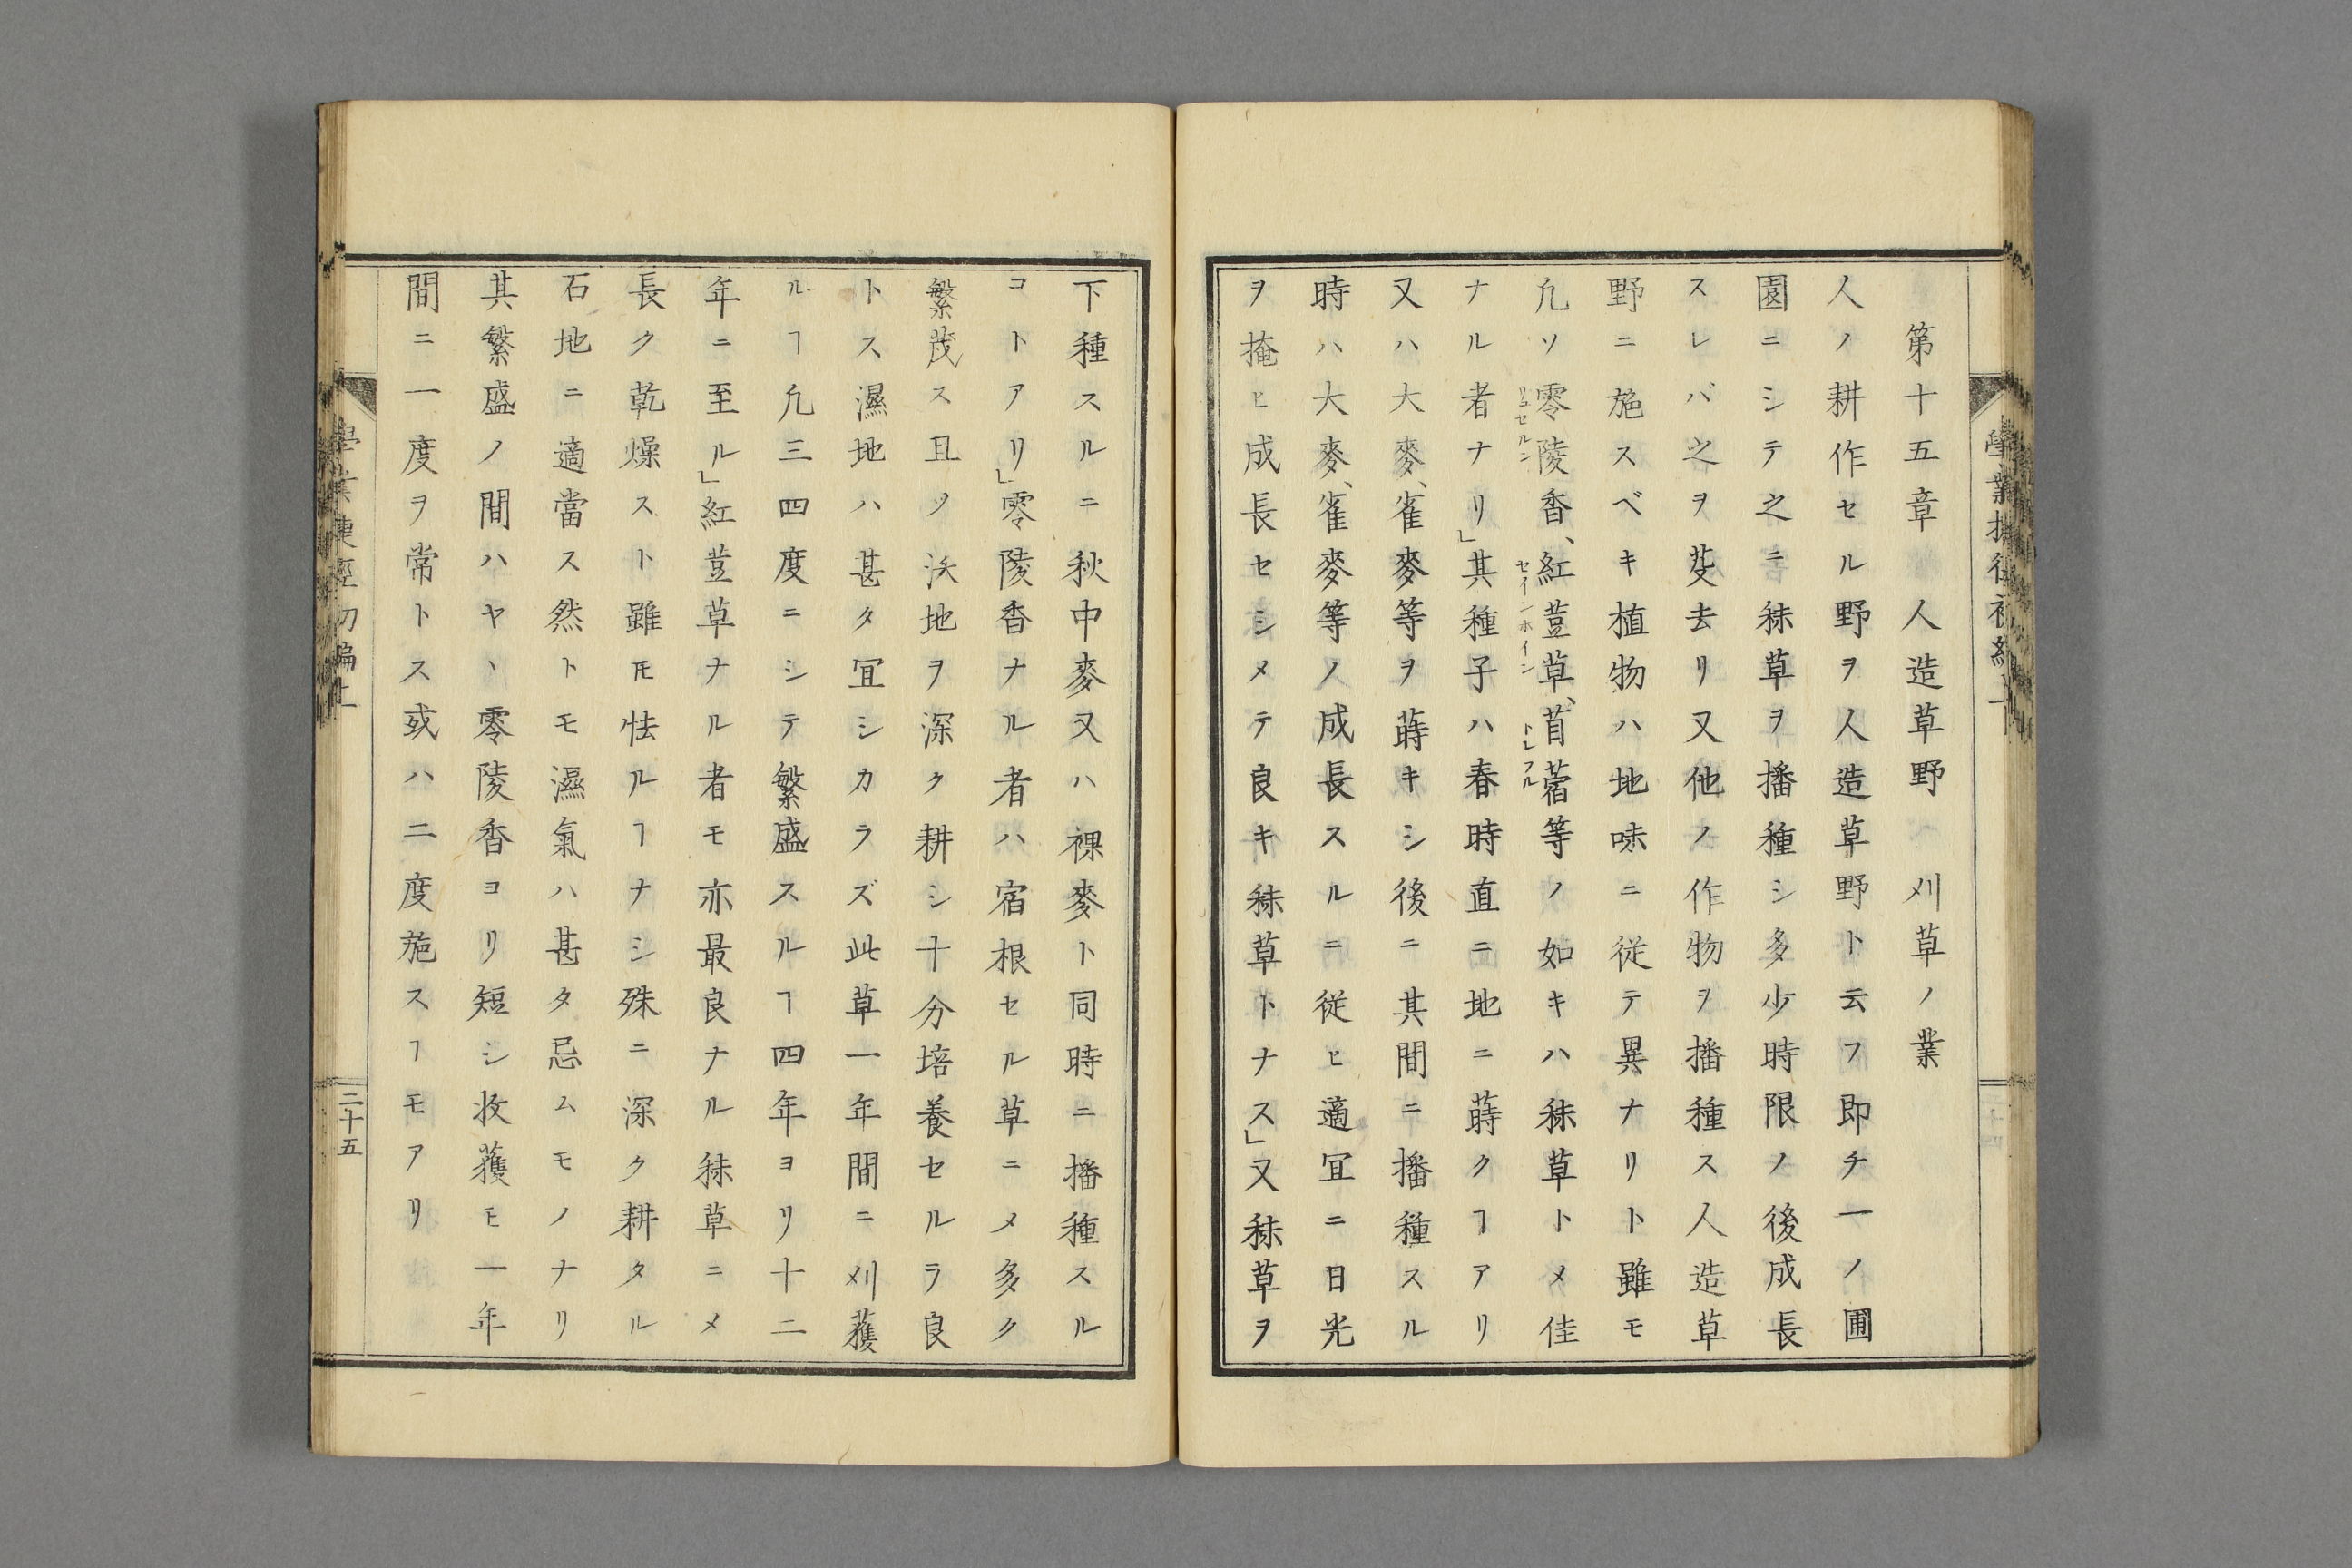 第十五章　人造草野　刈草ノ業
人ノ耕作セル野ヲ人造草野ト云フ即チ一ノ圃
園ニシテ之ニ秣草ヲ播種シ多少時限ノ後成長
スレバ之ヲ芟去リ又他ノ作物ヲ播種ス人造草
野ニ施スベキ植物ハ地味ニ従テ異ナリト雖モ
リュセルン
セインホイン
トレフル
凡ソ零陵香、紅荳草、苜蓿等ノ如キハ秣草トメ佳
ナル者ナリ」其種子ハ春時直ニ地ニ蒔クヿアリ
又ハ大麥、雀麥等ヲ蒔キシ後ニ其間ニ播種スル
時ハ大麥、雀麥等ノ成長スルニ従ヒ適冝ニ日光
ヲ掩ヒ成長セシメテ良キ秣草トナス」又秣草ヲ
下種スルニ秋中麥又ハ裸麥ト同時ニ播種スル
コトアリ」零陵香ナル者ハ宿根セル草ニメ多ク
繁茂ス且ツ沃地ヲ深ク耕シ十分培養セルヲ良
トス濕地ハ甚タ冝シカラズ此草一年間ニ刈穫
ルヿ凡三四度ニシテ繁盛スルヿ四年ヨリ十二
年ニ至ル」紅荳草ナル者モ亦最良ナル秣草ニメ
長ク乾燥スト雖𪜈怯ルヿナシ殊ニ深ク耕タル
石地ニ適當ス然トモ濕氣ハ甚タ忌ムモノナリ
其繁盛ノ間ハヤヽ零陵香ヨリ短シ收穫モ一年
間ニ一度ヲ常トス或ハ二度施スヿモアリ
二十五